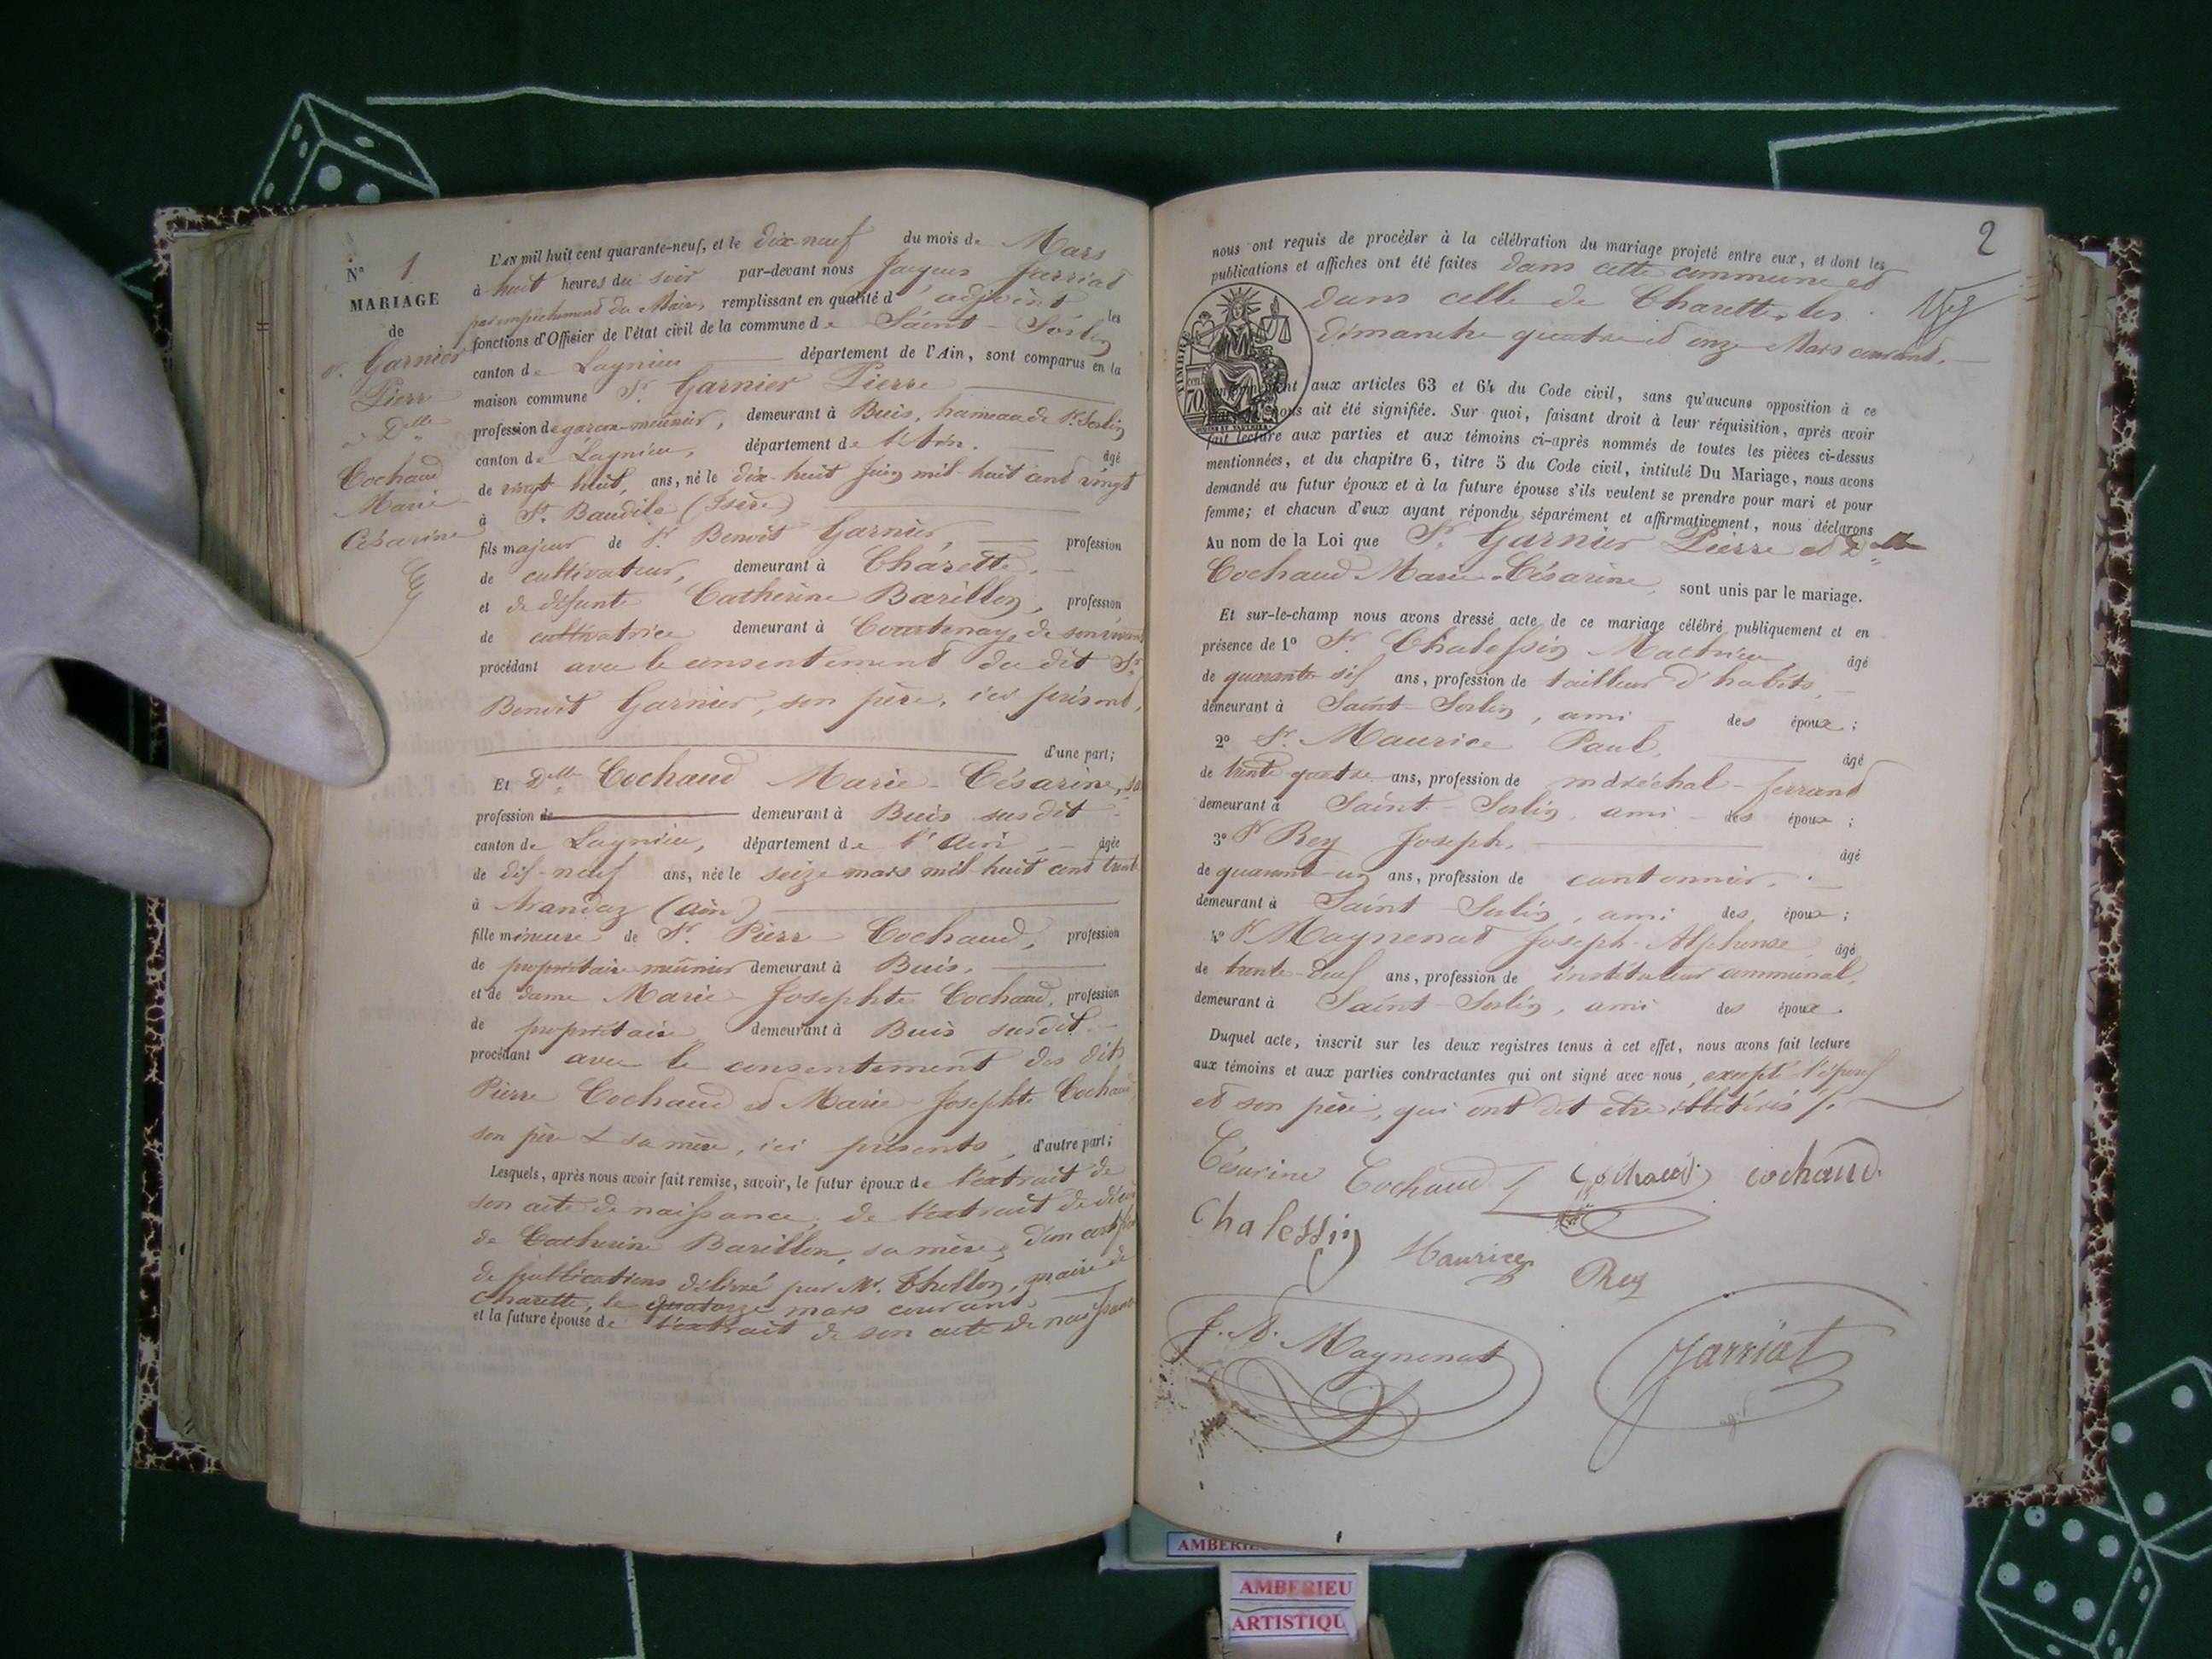 N° 1
MARIAGE
de
Sr. Garnier
Pierre
et Delle
Cochaud
Marie
Césarine
L'AN mil huit cent quarante-neuf, et le dix-neuf du mois de Mars
à huit heures du soir par-devant nous Jacques Jarriat
par empêchement du Maire, remplissant en qualité d'adjoint les
fonctions d'Officier de l'état civil de la commune de Saint-Sorlin
canton de Lagnieu département de l'Ain, sont comparus en la
maison commune Sr. Garnier Pierre
profession de garçon-meunier, demeurant à Buis, hameau de St. Sorlin
canton de Lagnieu, département de l'Ain. âgé
de vingt huit, ans, né le dix-huit Juin mil huit cent vingt
à St. Baudile (Isère)
fils majeur de Sr Benoît Garnier, profession
de cultivateur, demeurant à Charette.
et de défunte Catherine Barillon, profession
de cultivatrice demeurant à Courtenay, de son vivant
procédant avec le consentement du dit Sr
Benoît Garnier, son père, ici présent,
d'une part;
Et Delle Cochaud Marie-Césarine,
profession de demeurant à Buis susdit
canton de Lagnieu, département de l'Ain âgée
de dix-neuf ans, née le seize mars mil huit cent trente
à Arandaz (Ain)
fille mineure de Sr. Pierre Cochaud, profession
de propriétaire meunier demeurant à Buis.
et de dame Marie-Josephte Cochaud, profession
de propriétaire demeurant à Buis susdit.
procédant avec le consentement des dits
Pierre Cochaud et Marie-Josephte Cochaud
son père & sa mère, ici présents, d'autre part;
Lesquels, après nous avoir fait remise, savoir, le futur époux de l'extrait de
son acte de naissance, de l'extrait de décès
de Catherine Barillon, sa mère, d'un certificat
de publications délivré par Mr. Thollon, maire de
Charette, le quatorze mars courant,
et la future épouse de l'extrait de son acte de naissance
2
nous ont requis de procéder à la célébration du mariage projeté entre eux, et dont les
publications et affiches ont été faites dans cette commune et
dans celle de Charette, les
dimanche quatre et onze Mars courant.
TIMBRE
70
conformément aux articles 63 et 64 du Code civil, sans qu'aucune opposition à ce
mariage nous ait été signifiée. Sur quoi, faisant droit à leur réquisition, après avoir
fait lecture aux parties et aux témoins ci-après nommés de toutes les pièces ci-dessus
mentionnées, et du chapitre 6, titre 5 du Code civil, intitulé Du Mariage, nous avons
demandé au futur époux et à la future épouse s'ils veulent se prendre pour mari et pour
femme; et chacun d'eux ayant répondu séparément et affirmativement, nous déclarons
Au nom de la Loi que Sr. Garnier Pierre et Delle
Cochaud Marie-Césarine, sont unis par le mariage.
Et sur-le-champ nous avons dressé acte de ce mariage célébré publiquement et en
présence de 1° Sr. Chalessin Mathieu, âgé
de quarante six ans, profession de tailleur d'habits,
demeurant à Saint-Sorlin, ami des époux;
2° Sr. Maurice Paul, âgé
de trente quatre ans, profession de maréchal-ferrant
demeurant à Saint-Sorlin, ami des époux;
3° Sr Rey Joseph, âgé
de quarante-un ans, profession de cantonnier.
demeurant à Saint Sorlin, ami des époux;
4° Sr Magnenat Joseph-Alphonse, âgé
de trente-deux ans, profession de instituteur communal,
demeurant à Saint-Sorlin, ami des époux.
Duquel acte, inscrit sur les deux registres tenus à cet effet, nous avons fait lecture
aux témoins et aux parties contractantes qui ont signé avec nous, excepté l'époux
et son père, qui ont dit être illétérés /.
Césarine Cochaud Cochaud cochaud.
Chalessin
Maurice
Rey
J. A. Magnenat
Jarriat
adj.t
AMBERIEU
AMBERIEU
ARTISTIQU